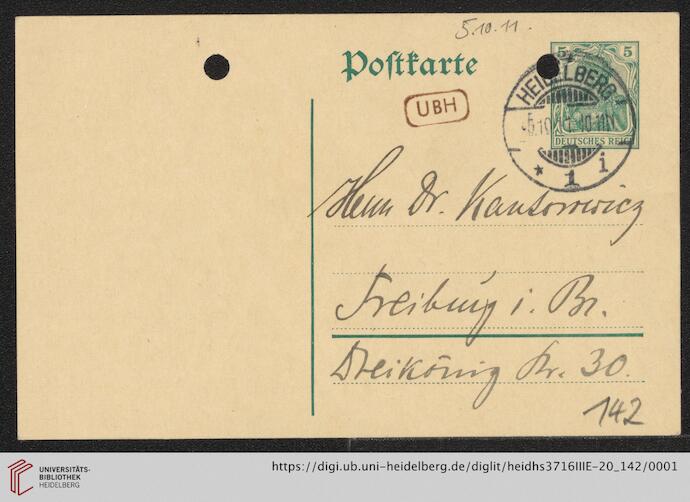 5.10.11.
Postkarte
5 5
DEUTSCHES REICH
HEIDELBERG
* 1 i
UBH
Herrn Dr. Kantorowicz
Freiburg i. Br.
Dreikönig str. 30.
142
UNIVERSITÄTS-
BIBLIOTHEK
HEIDELBERG
https://digi.ub.uni-heidelberg.de/diglit/heidhs3716IIIE-20_142/0001